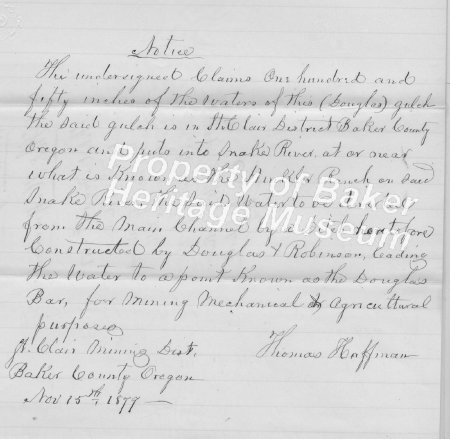 Notice
The undersigned Claims One hundred and
fifty inches of the waters of this (Douglas) gulch
the said gulch is in St. Clair District Baker County
Oregon and puts into Snake River, at or near
what is Known as the Ranch on said
Snake River the said Water to be
from the Main Channel by a ditch heretofore
Constructed by Douglas & Robinson, leading
the Water to a point Known as the Douglas
Bar, for Mining Mechanical & Agricultural
purposes
St. Clair Mining Dist. Thomas Huffman
Baker County Oregon
Nov 15th, 1879 —
Property of Baker
Heritage Museum